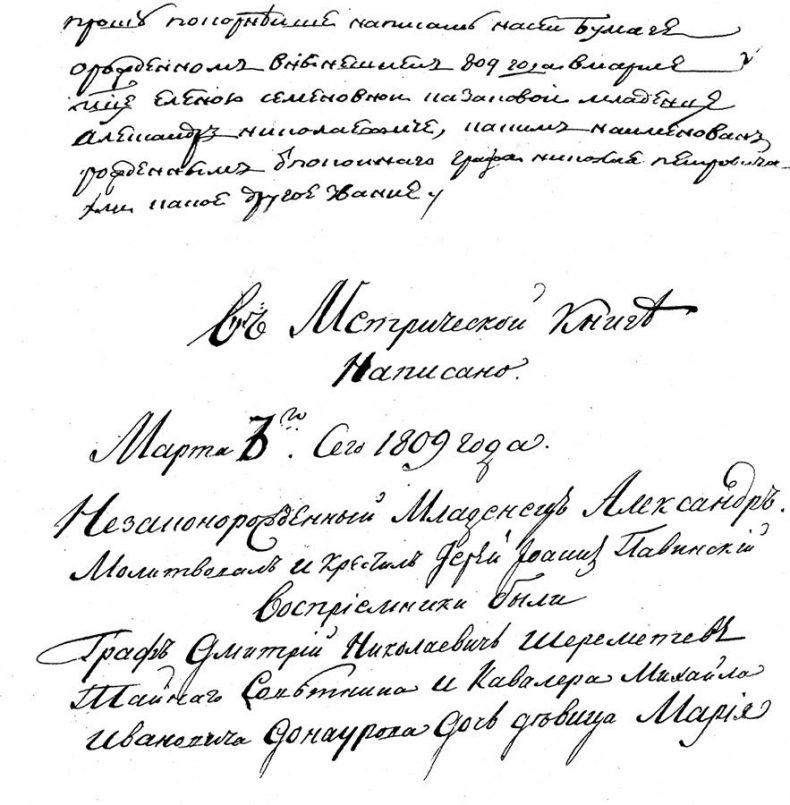 прошу покорнѣйше написать на сей бумаге
орожденномъ внынешнемъ 809 году вмарте
м͠це Еленою Семеновною Казаковой младенце
Александръ Николаевиче, какимъ наименованъ
рожденнымъ б покойнаго графа Николая Петровича
или какое другое звание
Въ Метрической Книгѣ
Написано.
Марта 3го. Сего 1809 года.
Незаконорожденный Младенецъ Александръ.
Молитвовалъ и Крестилъ Іерей Іоаннъ Павинскій
Воспріемники были
Графъ Дмитрій Николаевичь Шереметевъ
Тайнаго Совѣтника и Кавалера Михайла
Ивановича Донаурова Дочь дѣвица Марія